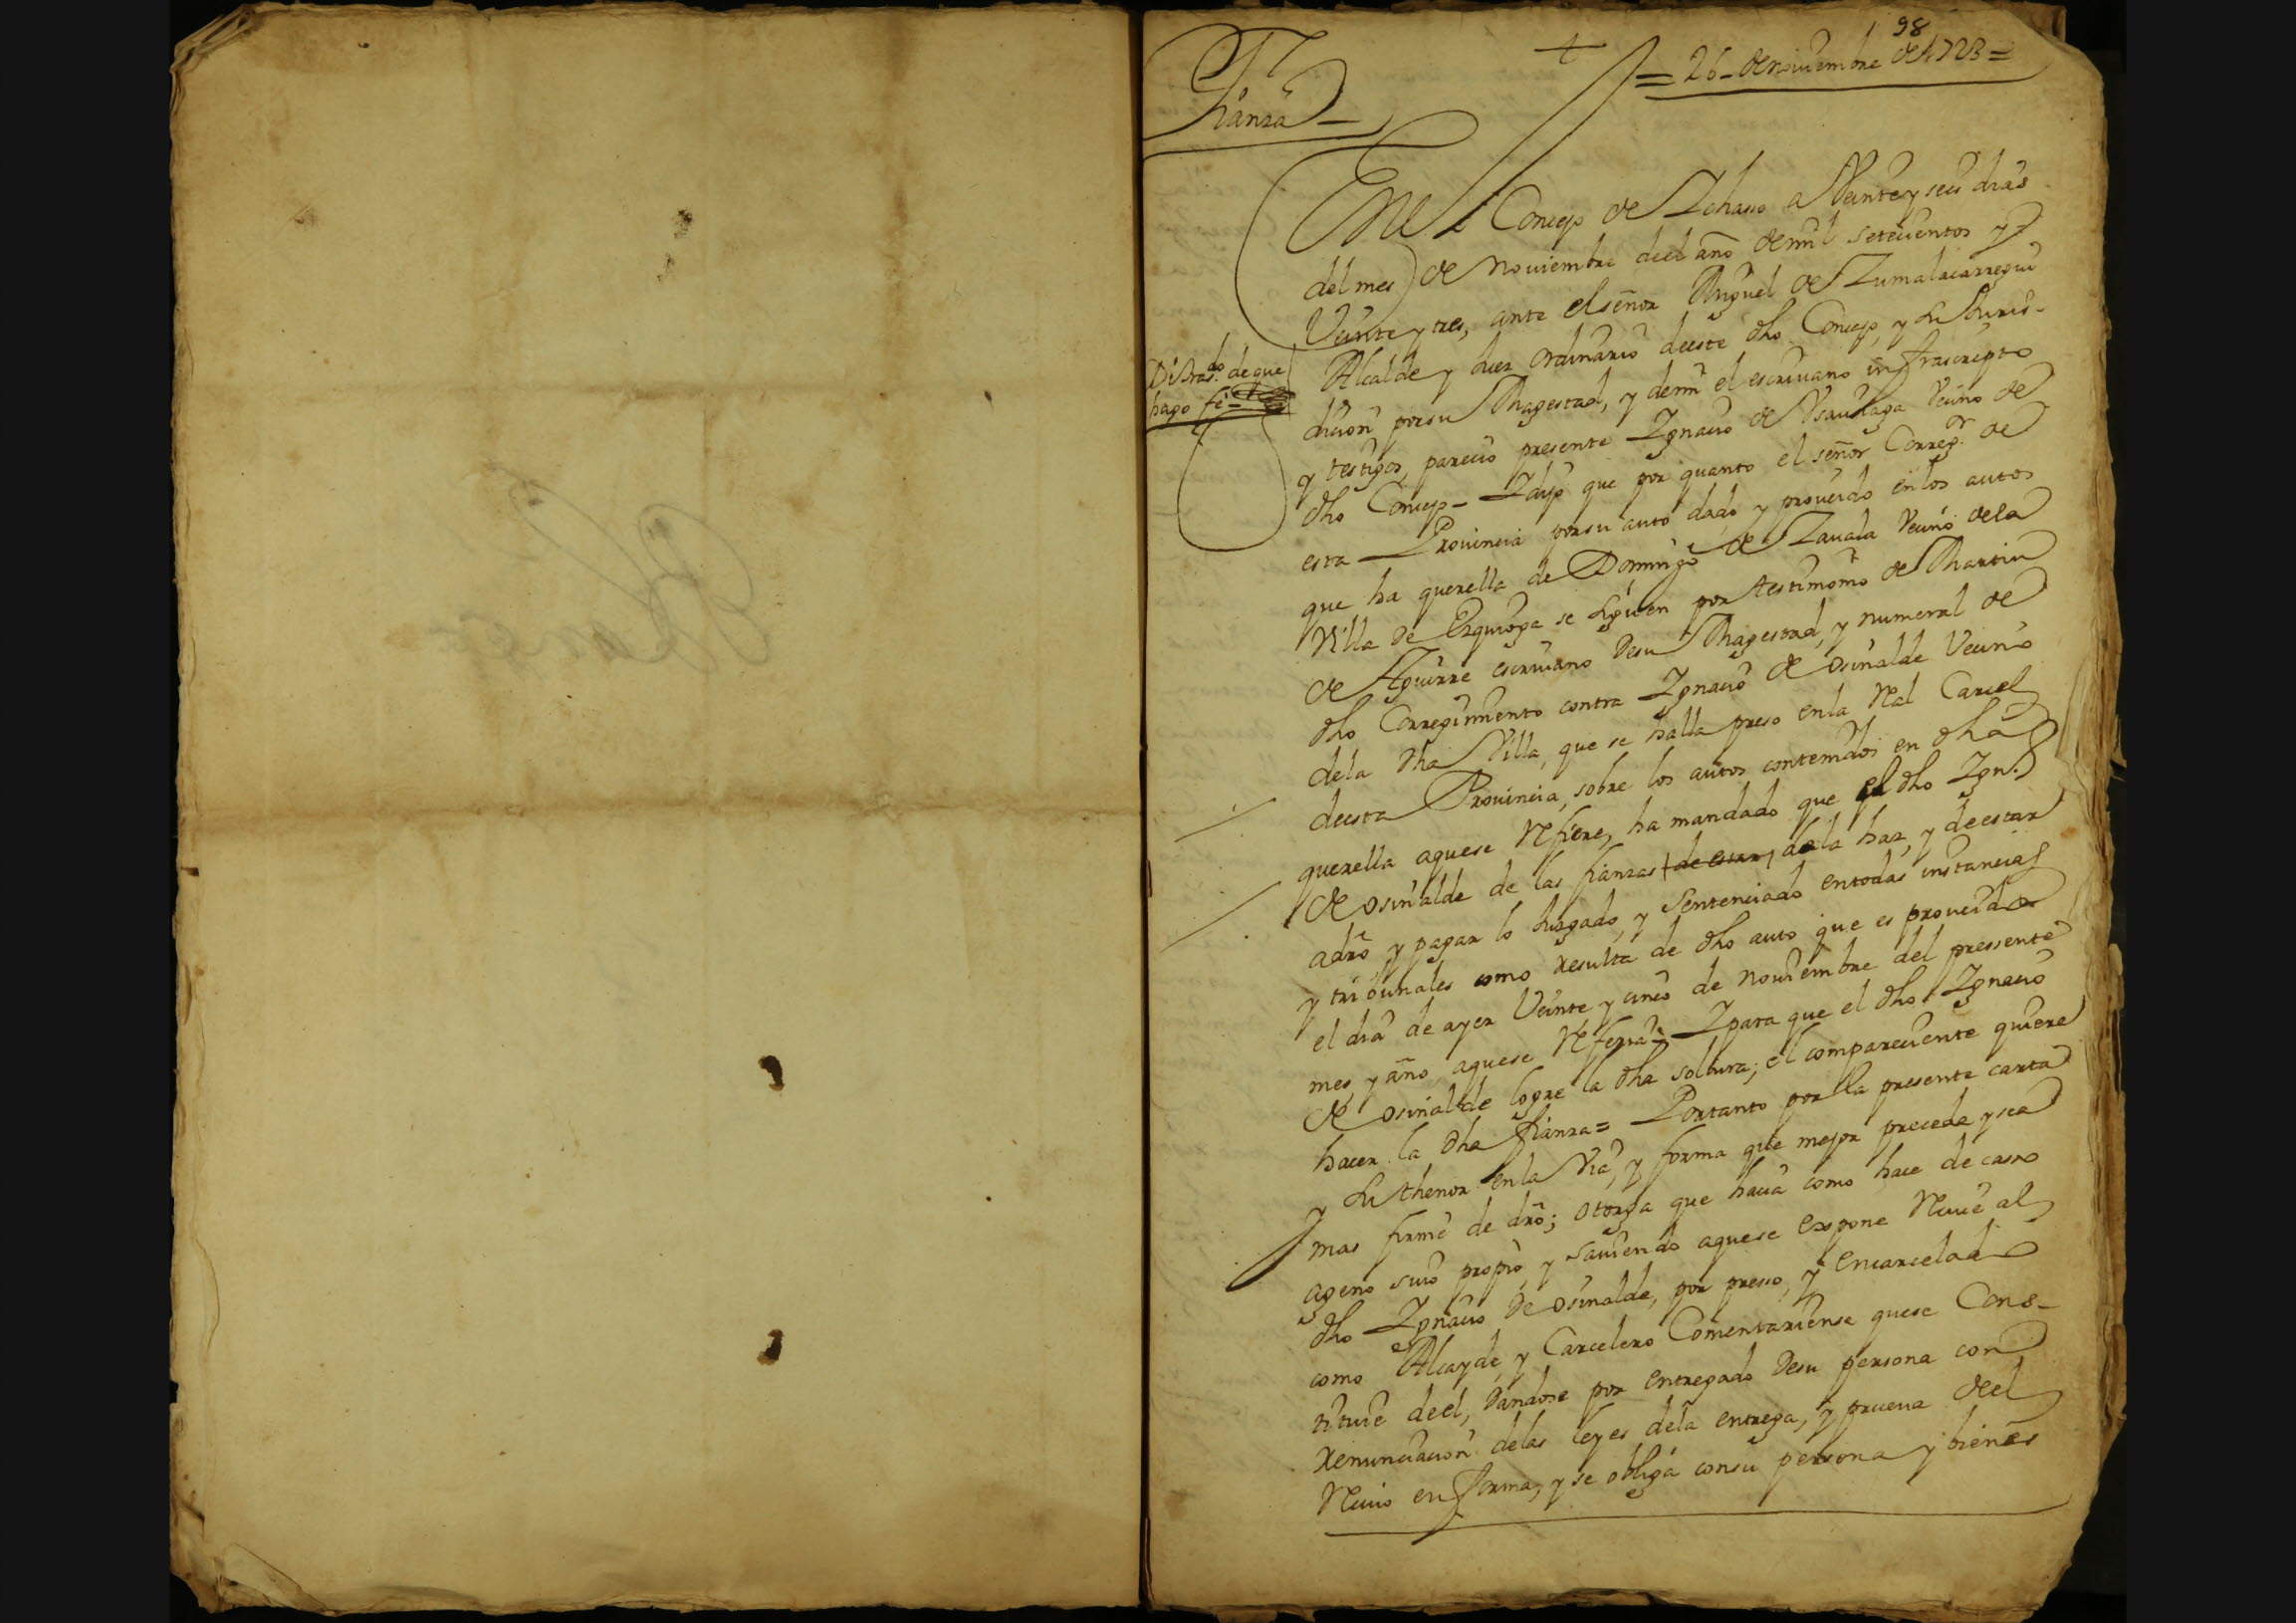 98
= 26 - de noviembre de 1723 =
Fianza
En el Concejo de Ichaso a Veinte y seis dias
del mes de Noviembre deel año de mil setecientos y
Veinte y tres, ante el señor Miguel de Zumalacarregui
Alcalde y Juez ordinario deeste dho Concejo, y su Juris-
dicion por su Magestad, y de mi el escriuano infrascripto
y testigos, parecio presente Ignacio de Vsauiaga Vecino de
dho Concejo - Y dijo que por quanto el señor Corregr. de
esta Prouincia por su auto dado y proueido en los autos
que ha querella de Domingo de Zauala Vecino dela
Villa de Ezquioga se siguen por testimonio de Martin
de Aguirre escriuano de su Magestad, y numeral de
dho Corregimiento contra Ignacio de Osinalde Vecino
dela dha Villa, que se halla preso en la Rl Carcel
deesta Prouincia, sobre los autos contenidos en dha
querella aque se Refiere, ha mandado que el dho Ign.o
de Osinalde de las fianzas de estar dela haz, y de estar
a dro y pagar lo Juzgado, y Sentenciado en todas instancias
y tribunales como resulta de dho auto que es proueido
el dia de ayer Veinte y cinco de Nouiembre del pressente
mes y año, aque se Referia = Y para que el dho Ignacio
de Osinalde logre la dha soltura; el compareciente quiere
hacer la dha fianza = Portanto por lla presente carta
y su thenor en la Via, y forma que mejor precede y sea
mas firme de dro; otorga que hacia como hace de casso
ageno suio propio, y sauiendo aque se expone Reciue al
dho Ignacio de Osinalde, por presso, y encarcelado
como Alcayde, y Carcelero Comentariense que se Cons-
tituie deel, dandose por entregado de su persona con
renunciacion delas leyes dela entrega, y prueua deel
Reciuo en forma, y se obliga con su persona y bienes
Di tras.do de que
hago fe -